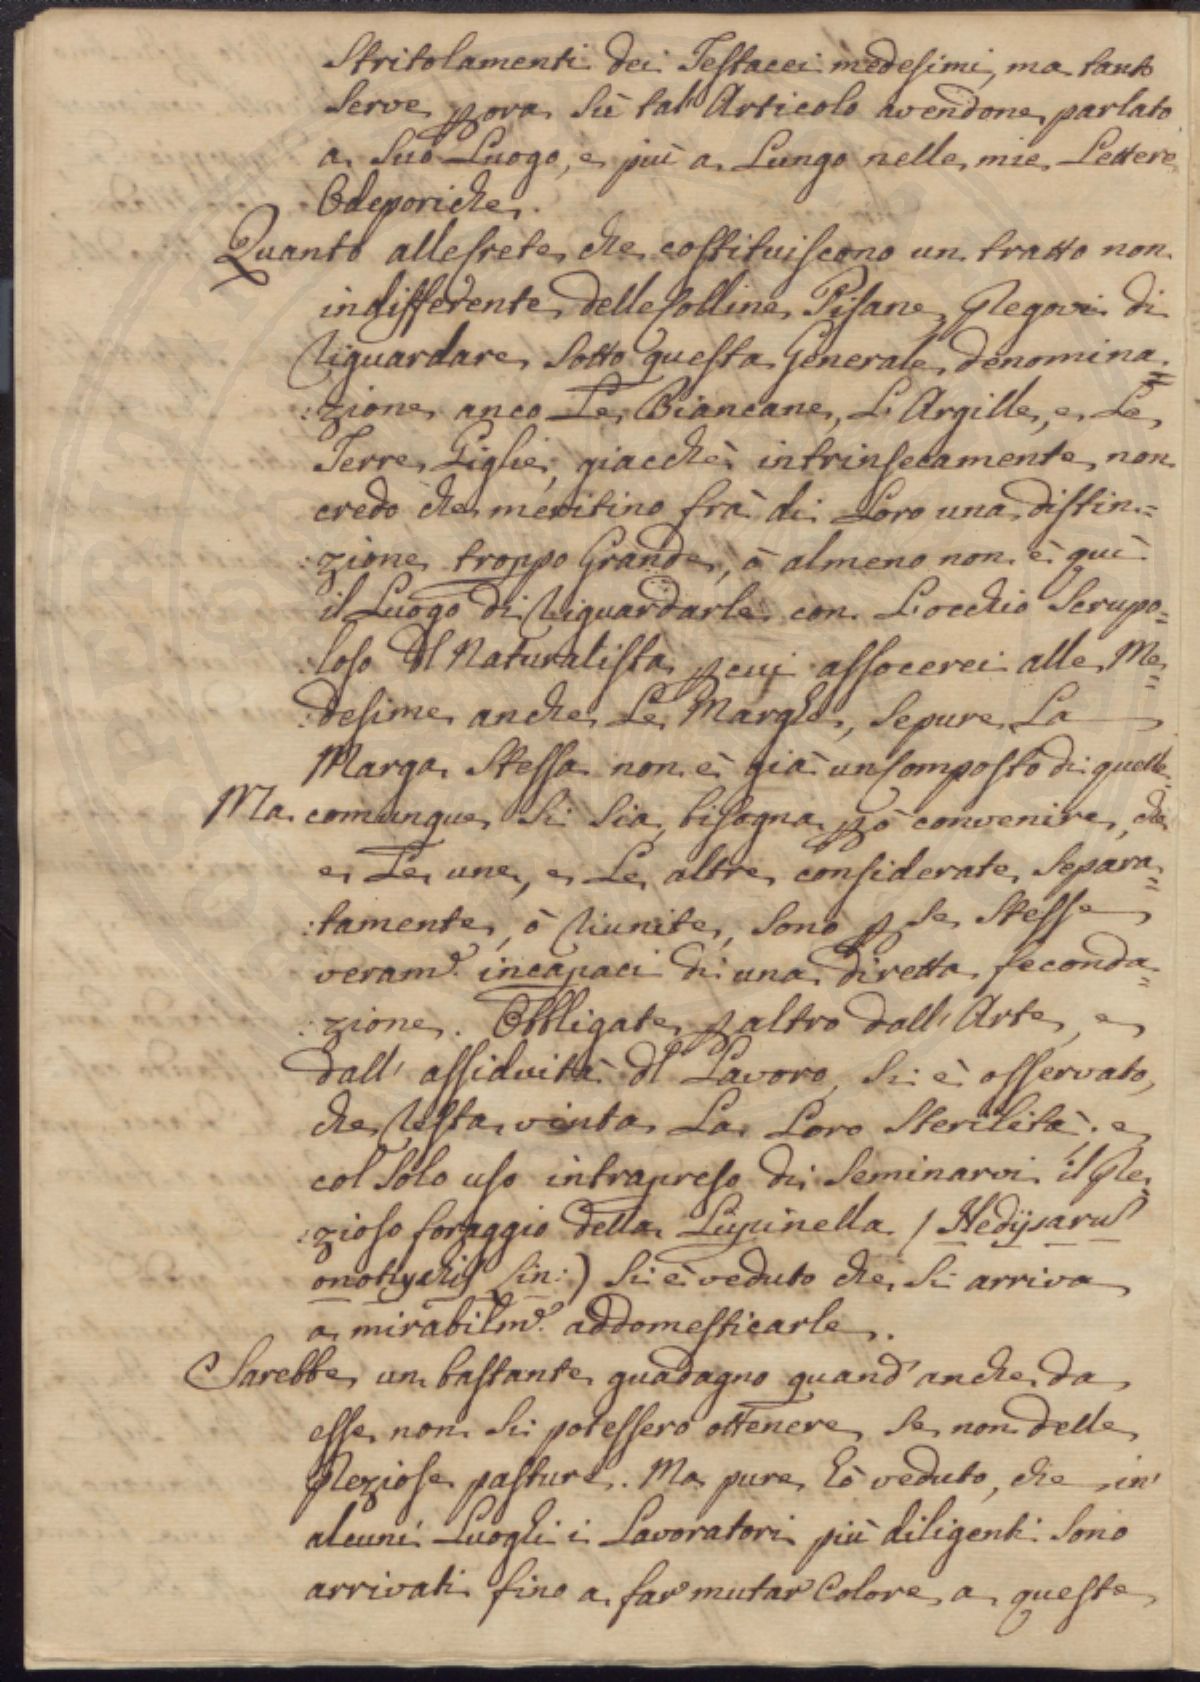 Stritolamenti dei Testacei medesimi, ma tanto
serve p ora sù tal' Articolo avendone parlato
a suo Luogo, e più a Lungo nelle mie Lettere
Odeporiche.
Quanto alle Crete che costituiscono un tratto non
indifferente delle Colline Pisane, Pregovi di
riguardare sotto questa Generale denomina=
:zione anco Le Biancane, L'Argille, e Le
Terre Giglie, giacchè intrinsecamente non
credo che meritino frà di Loro una distin=
:zione troppo Grande, ò almeno non è quì
il Luogo di riguardarle con L'occhio Scrupo=
:loso dl Naturalista, p cui assocerei alle Me=
:desime anche Le Marghe, se pure La
Marga stessa non è già un Composto di quelle.
Ma comunque si sia, bisogna pò convenire, che
e Le une, e Le altre considerate separa=
:tamente, ò riunite, sono p se stesse
veram.e incapaci di una diretta feconda=
:zione. Obbligate p altro dall' Arte, e
dall' assiduità dl Lavoro, si è osservato,
che resta vinta La Loro sterilità; e
col solo uso intrapreso di seminarvi il Pre=
:zioso foraggio della Lupinella (Hedysarus
onobrychis Lin:) si è veduto che si arriva
a mirabilm.e addomesticarle.
Sarebbe un bastante guadagno quand' anche da
esse non si potessero ottenere se non delle
Preziose pasture. Ma pure hò veduto, che in'
alcuni Luoghi i Lavoratori più diligenti sono
arrivati fino a far mutar Colore a queste